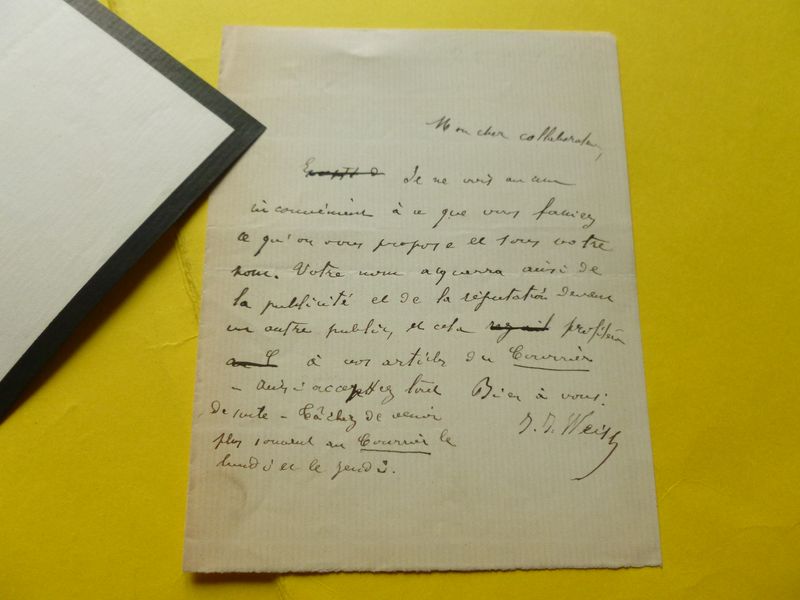 Mon cher collaborateur,
Je ne vois aucun
inconvénient à ce que vous fassiez
ce qu'on vous propose et sous votre
nom. Votre nom acquerra ainsi de
la publicité et de la réputation devant
un autre public, et cela profitera
à vos articles du Courrier
– Aussi acceptez tout Bien à vous:
de suite – Tâchez de venir J. J. Weiss
plus souvent au Courrier le
lundi et le jeudi.